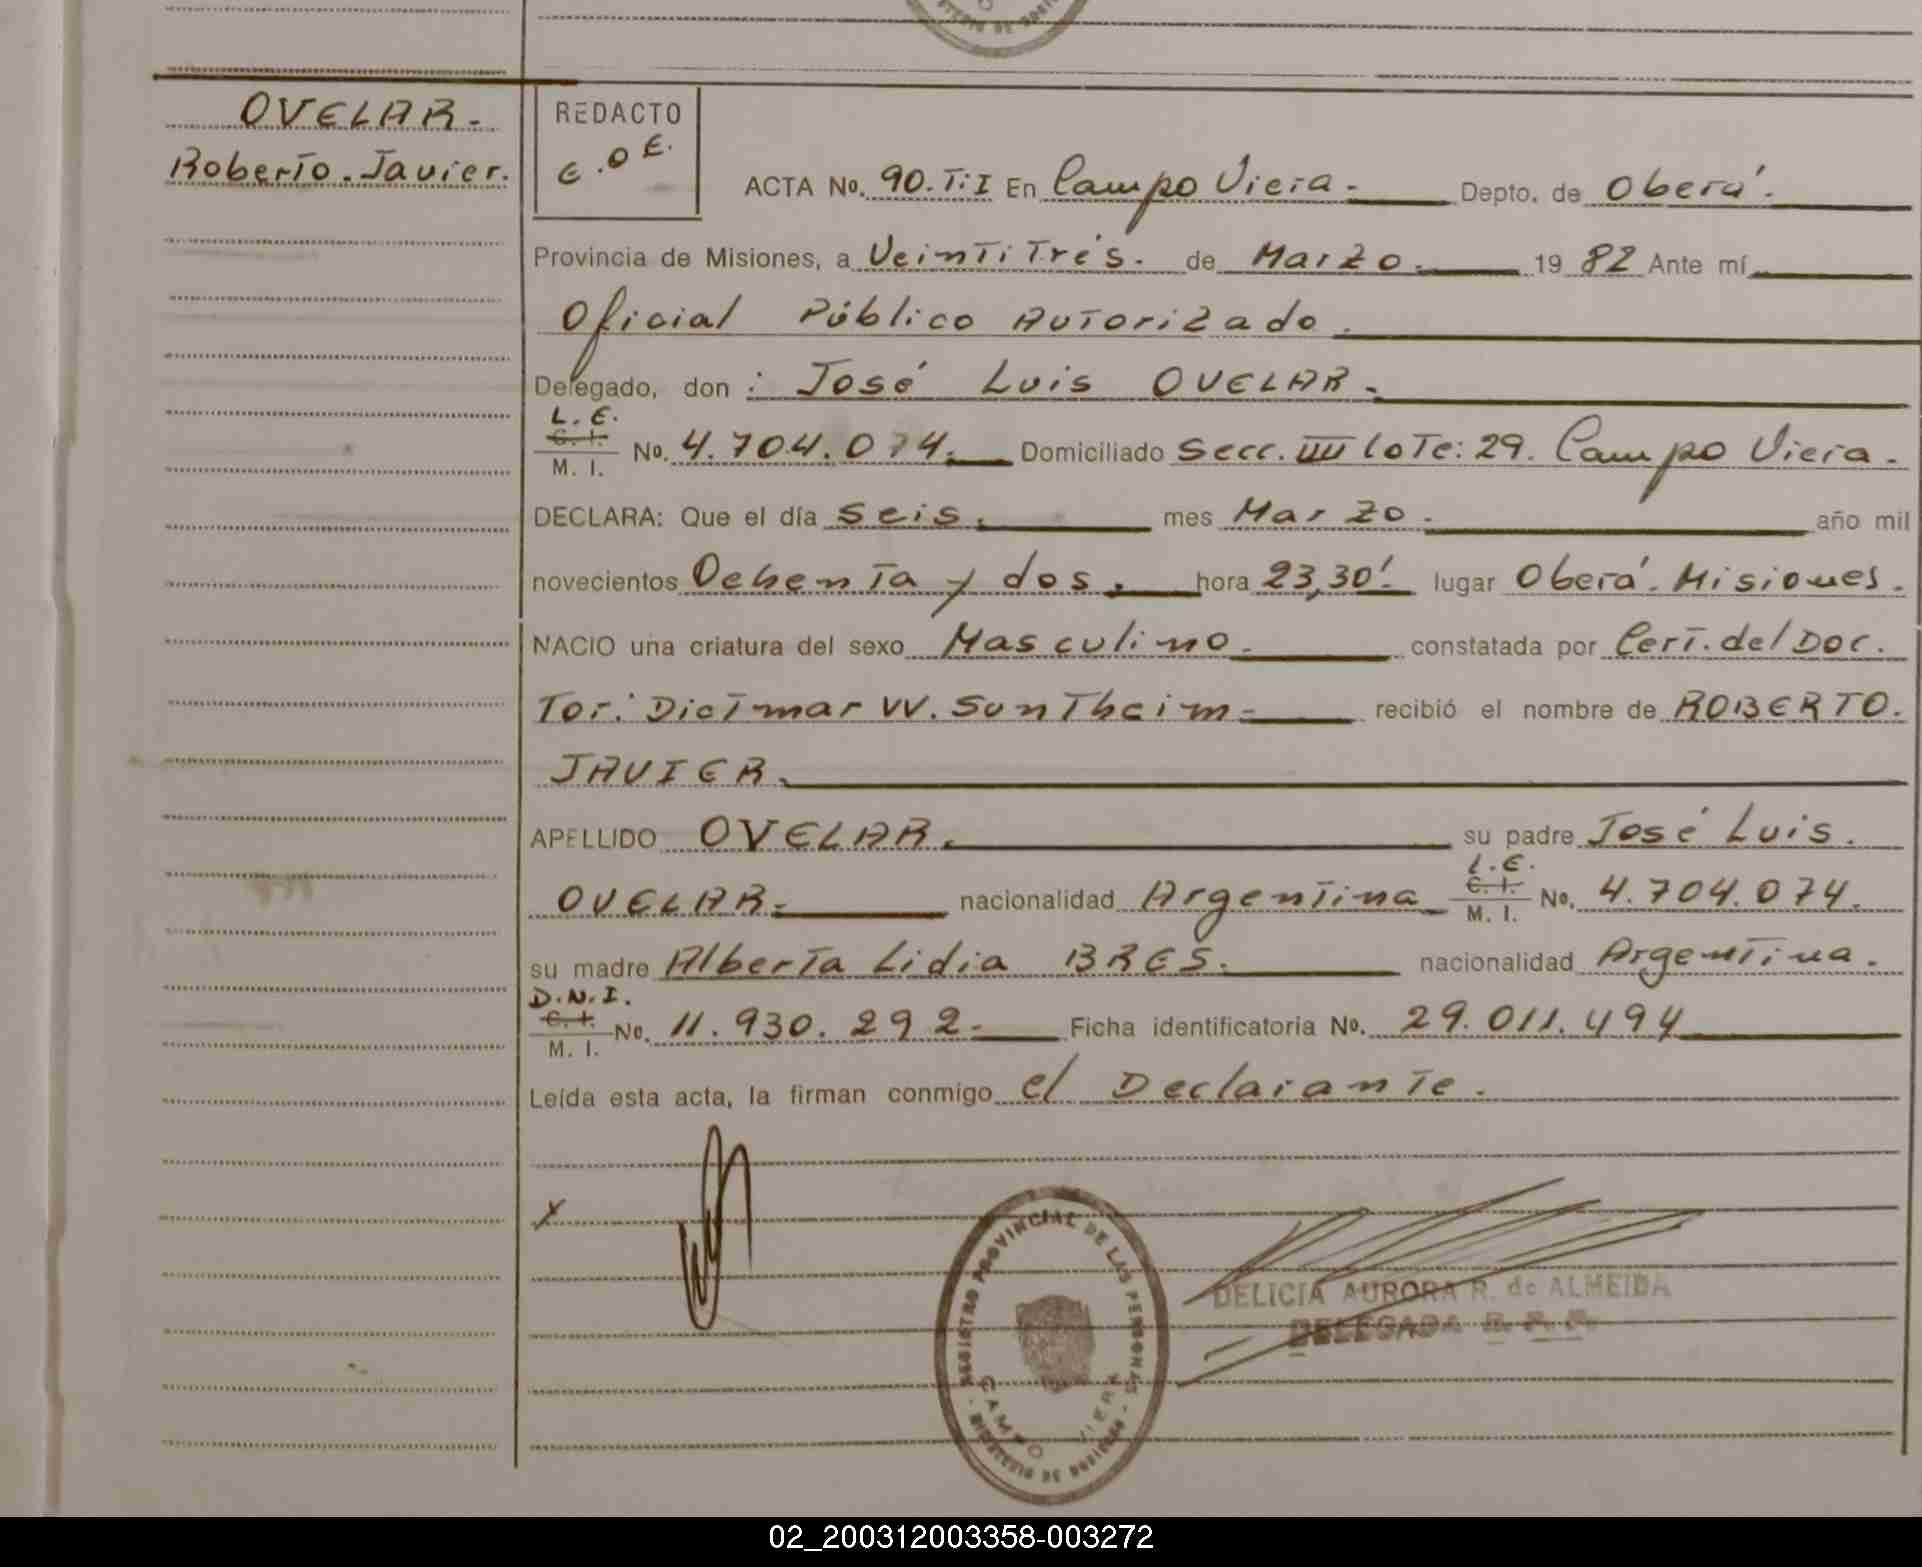 OVELAR.
Roberto. Javier.
REDACTO
E.O E.
ACTA No. 90. T: I En Campo Viera. Depto. de Oberá.
Provincia de Misiones, a Veintitrés. de Marzo. 19 82 Ante mí
Oficial Público Autorizado.
Delegado, don : José Luis OVELAR.
L. E.
C. I.
M. I.
No. 4.704.074. Domiciliado Secc. III Lote: 29. Campo Viera.
DECLARA: Que el día seis. mes Marzo. año mil
novecientos Ochenta y dos. hora 23,30' lugar Oberá. Misiones.
NACIO una criatura del sexo Masculino. constatada por Cert. del Doc.
Tor: Dietmar W. Suntheim recibió el nombre de ROBERTO.
JAVIER.
APELLIDO OVELAR. su padre José Luis.
OVELAR. nacionalidad Argentina
L. E.
C. I.
M. I.
No. 4.704.074.
su madre Alberta Lidia BRES. nacionalidad Argentina.
D.N.I.
C. I.
M. I.
No. 11.930.292. Ficha identificatoria No. 29.011.494
Leída esta acta, la firman conmigo el Declarante.
X
REGISTRO PROVINCIAL DE LAS PERSONAS
CAMPO VIERA
DELICIA AURORA R. de ALMEIDA
DELEGADA R. P. P.
02_200312003358-003272